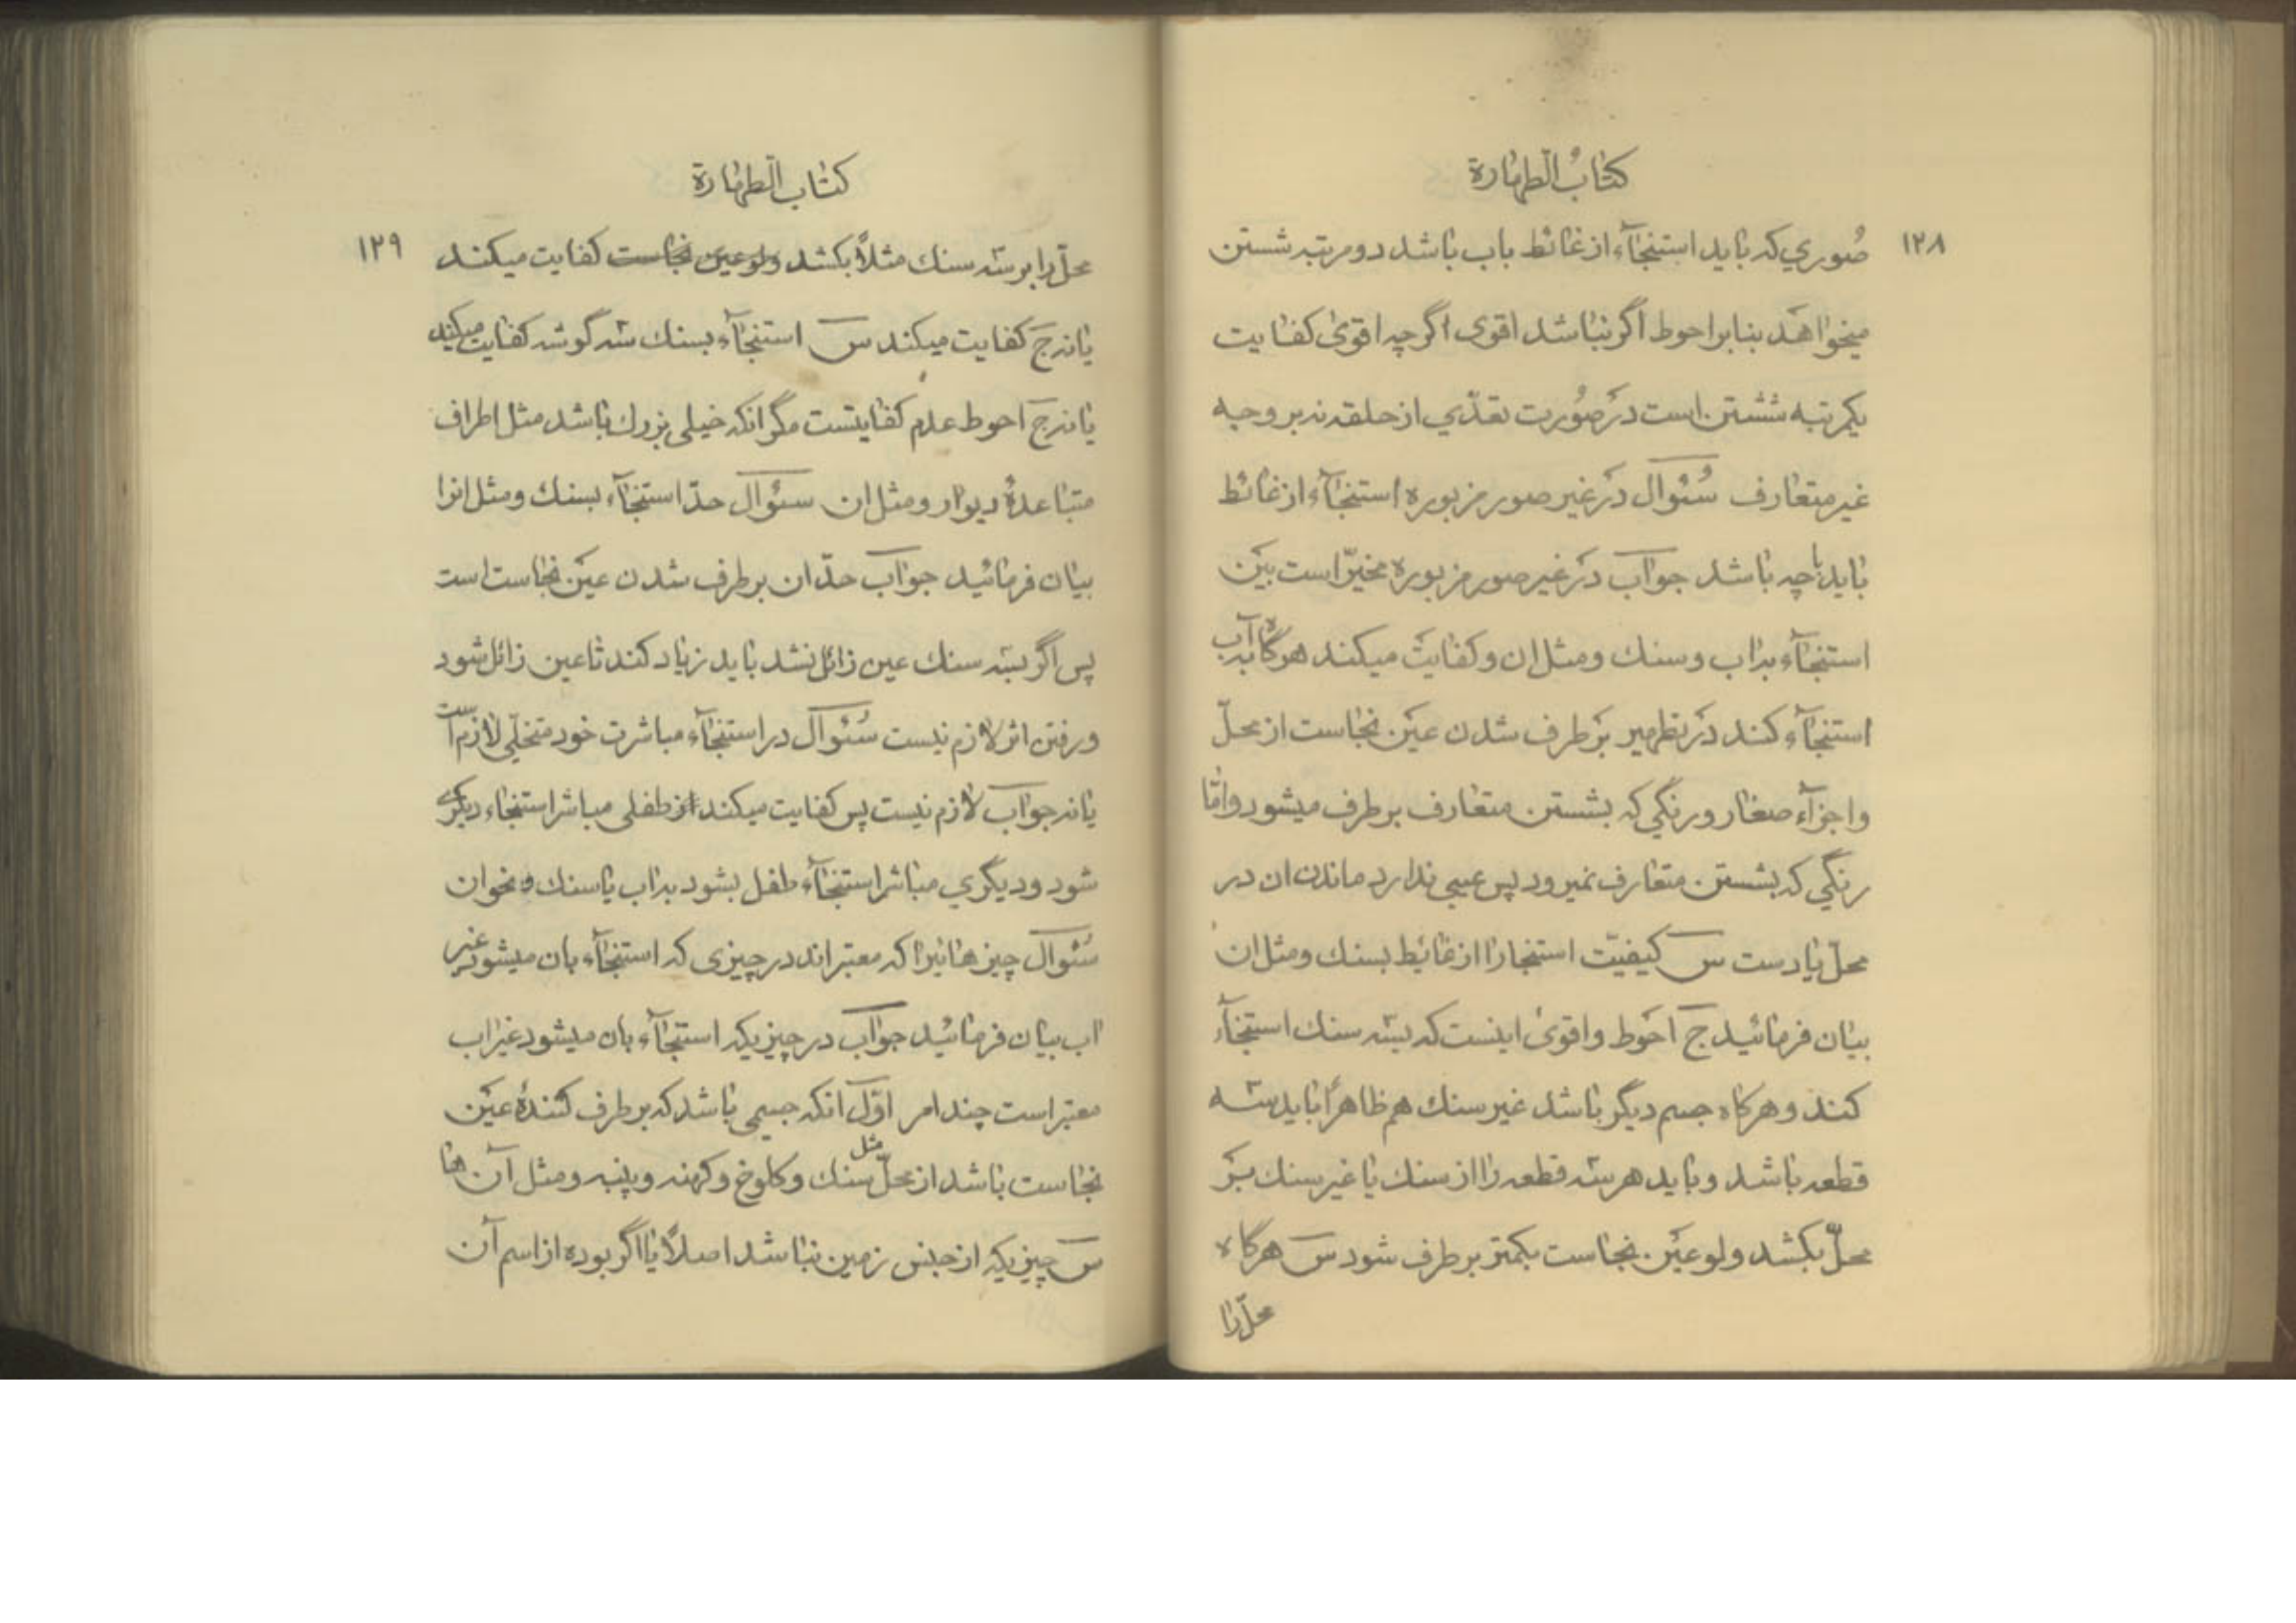 كتابُ الطهارة
۱۲۸
صُوري كه بايد استنجآء از غائط باب باشد دو مرتبه شستن
ميخواهد بنابر احوط اگر نباشد اقوى اگر چه اقوى كفايت
يكمرتبه شستن است در صُورت تعدّي از حلقه نه بر وجه
غير متعارف سُئوال در غير صور مزبوره استنجآء از غائط
بايد با چه باشد جواب در غير صور مزبوره مخيّر است بين
استنجآء بداب وسنك ومثل ان وكفايت ميكند هرگاه بدآب
استنجآء كند در تطهير برطرف شدن عين نجاست از محلّ
واجزآء صغار ورنگي كه بشستن متعارف برطرف ميشود وامّا
رنگي كه بشستن متعارف نميرود پس عيبى ندارد ماندن ان در
محلّ يا دست س كيفيّت استنجا را از غايط بسنك ومثل ان
بيان فرمائيد ج احوط واقوى اينست كه بسه سنك استنجآء
كند وهركاه جسم ديگر باشد غير سنك هم ظاهراً بايد سه
قطعه باشد وبايد هر سه قطعه را از سنك يا غير سنك بر
محلّ بكشد ولو عين نجاست بكمتر برطرف شود س هرگاه
محلّ را
كتاب الطهارة
۱۲۹
محلّ را بر سه سنك مثلاً بكشد ولو عين نجاست كفايت ميكند
يا نه ج كفايت ميكند س استنجآء بسنك سه گوشه كفايت ميكند
يا نه ج احوط عدم كفايتست مگر انكه خيلى بزرك باشد مثل اطراف
متباعدهٔ ديوار ومثل ان سئوال حدّ استنجآء بسنك ومثل انرا
بيان فرمائيد جواب حدّ ان برطرف شدن عين نجاست است
پس اگر بسه سنك عين زائل نشد بايد زياد كند تا عين زائل شود
ورفتن اثر لازم نيست سُئوال در استنجآء مباشرت خود متخلّى لازم است
يا نه جواب لازم نيست پس كفايت ميكند از طفلى مباشر استنجاء ديگرى
شود وديگري مباشر استنجآء طفل بشود بداب يا سنك ونحوان
سُئوال چيز هائيرا كه معتبراند در چيزى كه استنجآء بان ميشود غير
اب بيان فرمائيد جواب در چيزيكه استنجآء بان ميشود غير اب
معتبر است چند امر اوّل انكه جسمى باشد كه برطرف كنندهٔ عين
نجاست باشد از محلّ مثل سنك وكلوخ وكهنه وپنبه ومثل آن ها
س چيزيكه از جنس زمين نباشد اصلاً يا اگر بوده از اسم آن